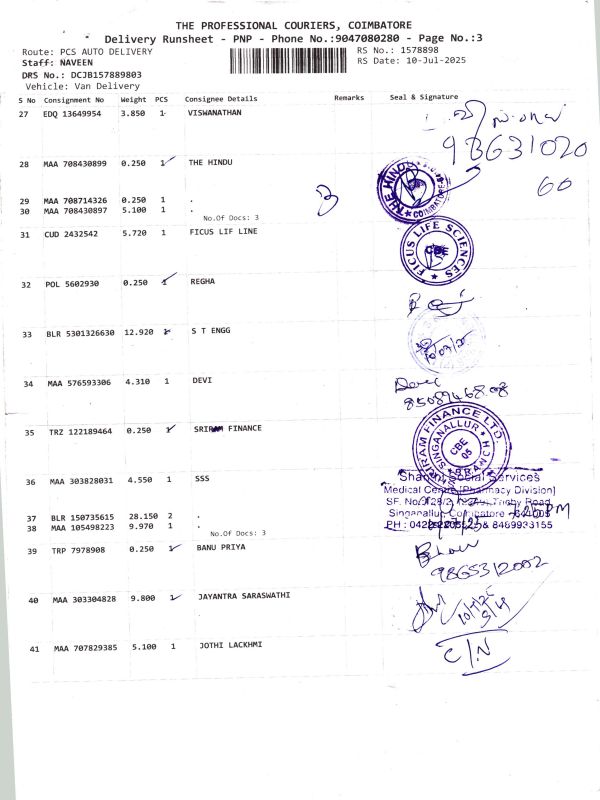 THE PROFESSIONAL COURIERS, COIMBATORE
Delivery Runsheet - PNP - Phone No.:9047080280 - Page No.:3
Route: PCS AUTO DELIVERY
RS No.: 1578898
Staff: NAVEEN
RS Date: 10-Jul-2025
DRS No.: DCJB157889803
Vehicle: Van Delivery
S No Consignment No Weight PCS Consignee Details Remarks Seal & Signature
27 EDQ 13649954 3.850 1 VISWANATHAN
98631020
60
28 MAA 708430899 0.250 1 THE HINDU
THE HINDU
COIMBATORE
29 MAA 708714326 0.250 1 .
30 MAA 708430897 5.100 1 .
No.Of Docs: 3
3
31 CUD 2432542 5.720 1 FICUS LIF LINE
FICUS LIFE SCIENCES
CBE
32 POL 5602930 0.250 1 REGHA
33 BLR 5301326630 12.920 1 S T ENGG
34 MAA 576593306 4.310 1 DEVI
Devi
35 TRZ 122189464 0.250 1 SRIRAM FINANCE
SRIRAM FINANCE LTD.
SINGANALLUR BRANCH
CBE
05
36 MAA 303828031 4.550 1 SSS
Social Services
Medical Centre (Pharmacy Division)
Trichy Road
Singanallur, Coimbatore - 641005
& 8489933155
37 BLR 150735615 28.150 2 .
38 MAA 105498223 9.970 1 .
No.Of Docs: 3
39 TRP 7978908 0.250 1 BANU PRIYA
9865312002
40 MAA 303304828 9.800 1 JAYANTRA SARASWATHI
41 MAA 707829385 5.100 1 JOTHI LACKHMI
C/N